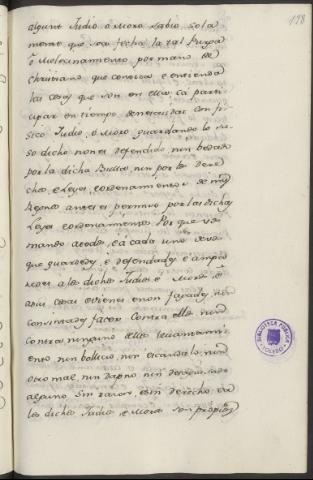 198
algunt Judio ô Moro Sabio sola
mente que sea fecha la tal purga
ô Melecinamiento por mano de
Christiano que conosca e entienda
las cosas que son en ella; ca parti-
cipar en tiempo de necesidat con fi-
sico Judio, ô Moro, guardando lo su-
so dicho non es defendido nin bedado
por la dicha Bulla, nin por los dere-
chos, e Leyes, e ordenamientos de mis
Regnos antes es permiso por las dichas
Leyes e ordenamientos. Por que vos
mando a todos, e a cada uno de vos
que guardedes, e defendades, e ampa-
redes a los dichos Judios e Moros, e
a sus cosas e bienes e non fagades, nin
consintades facer contra ellos, nin
contra ninguno dellos levantami-
ento nin bollicio, nin escandalo, nin
otro mal, nin dapno, nin desaguisado
alguno sin razon, e sin derecho, ca
los dichos Judios, e Moros son propios
BIBLIOTECA PUBLICA
TOLEDO